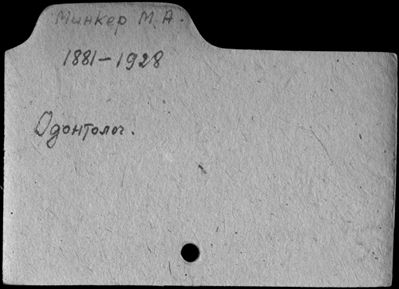 Минкер М. А.
1881-1928
Одонтолог.